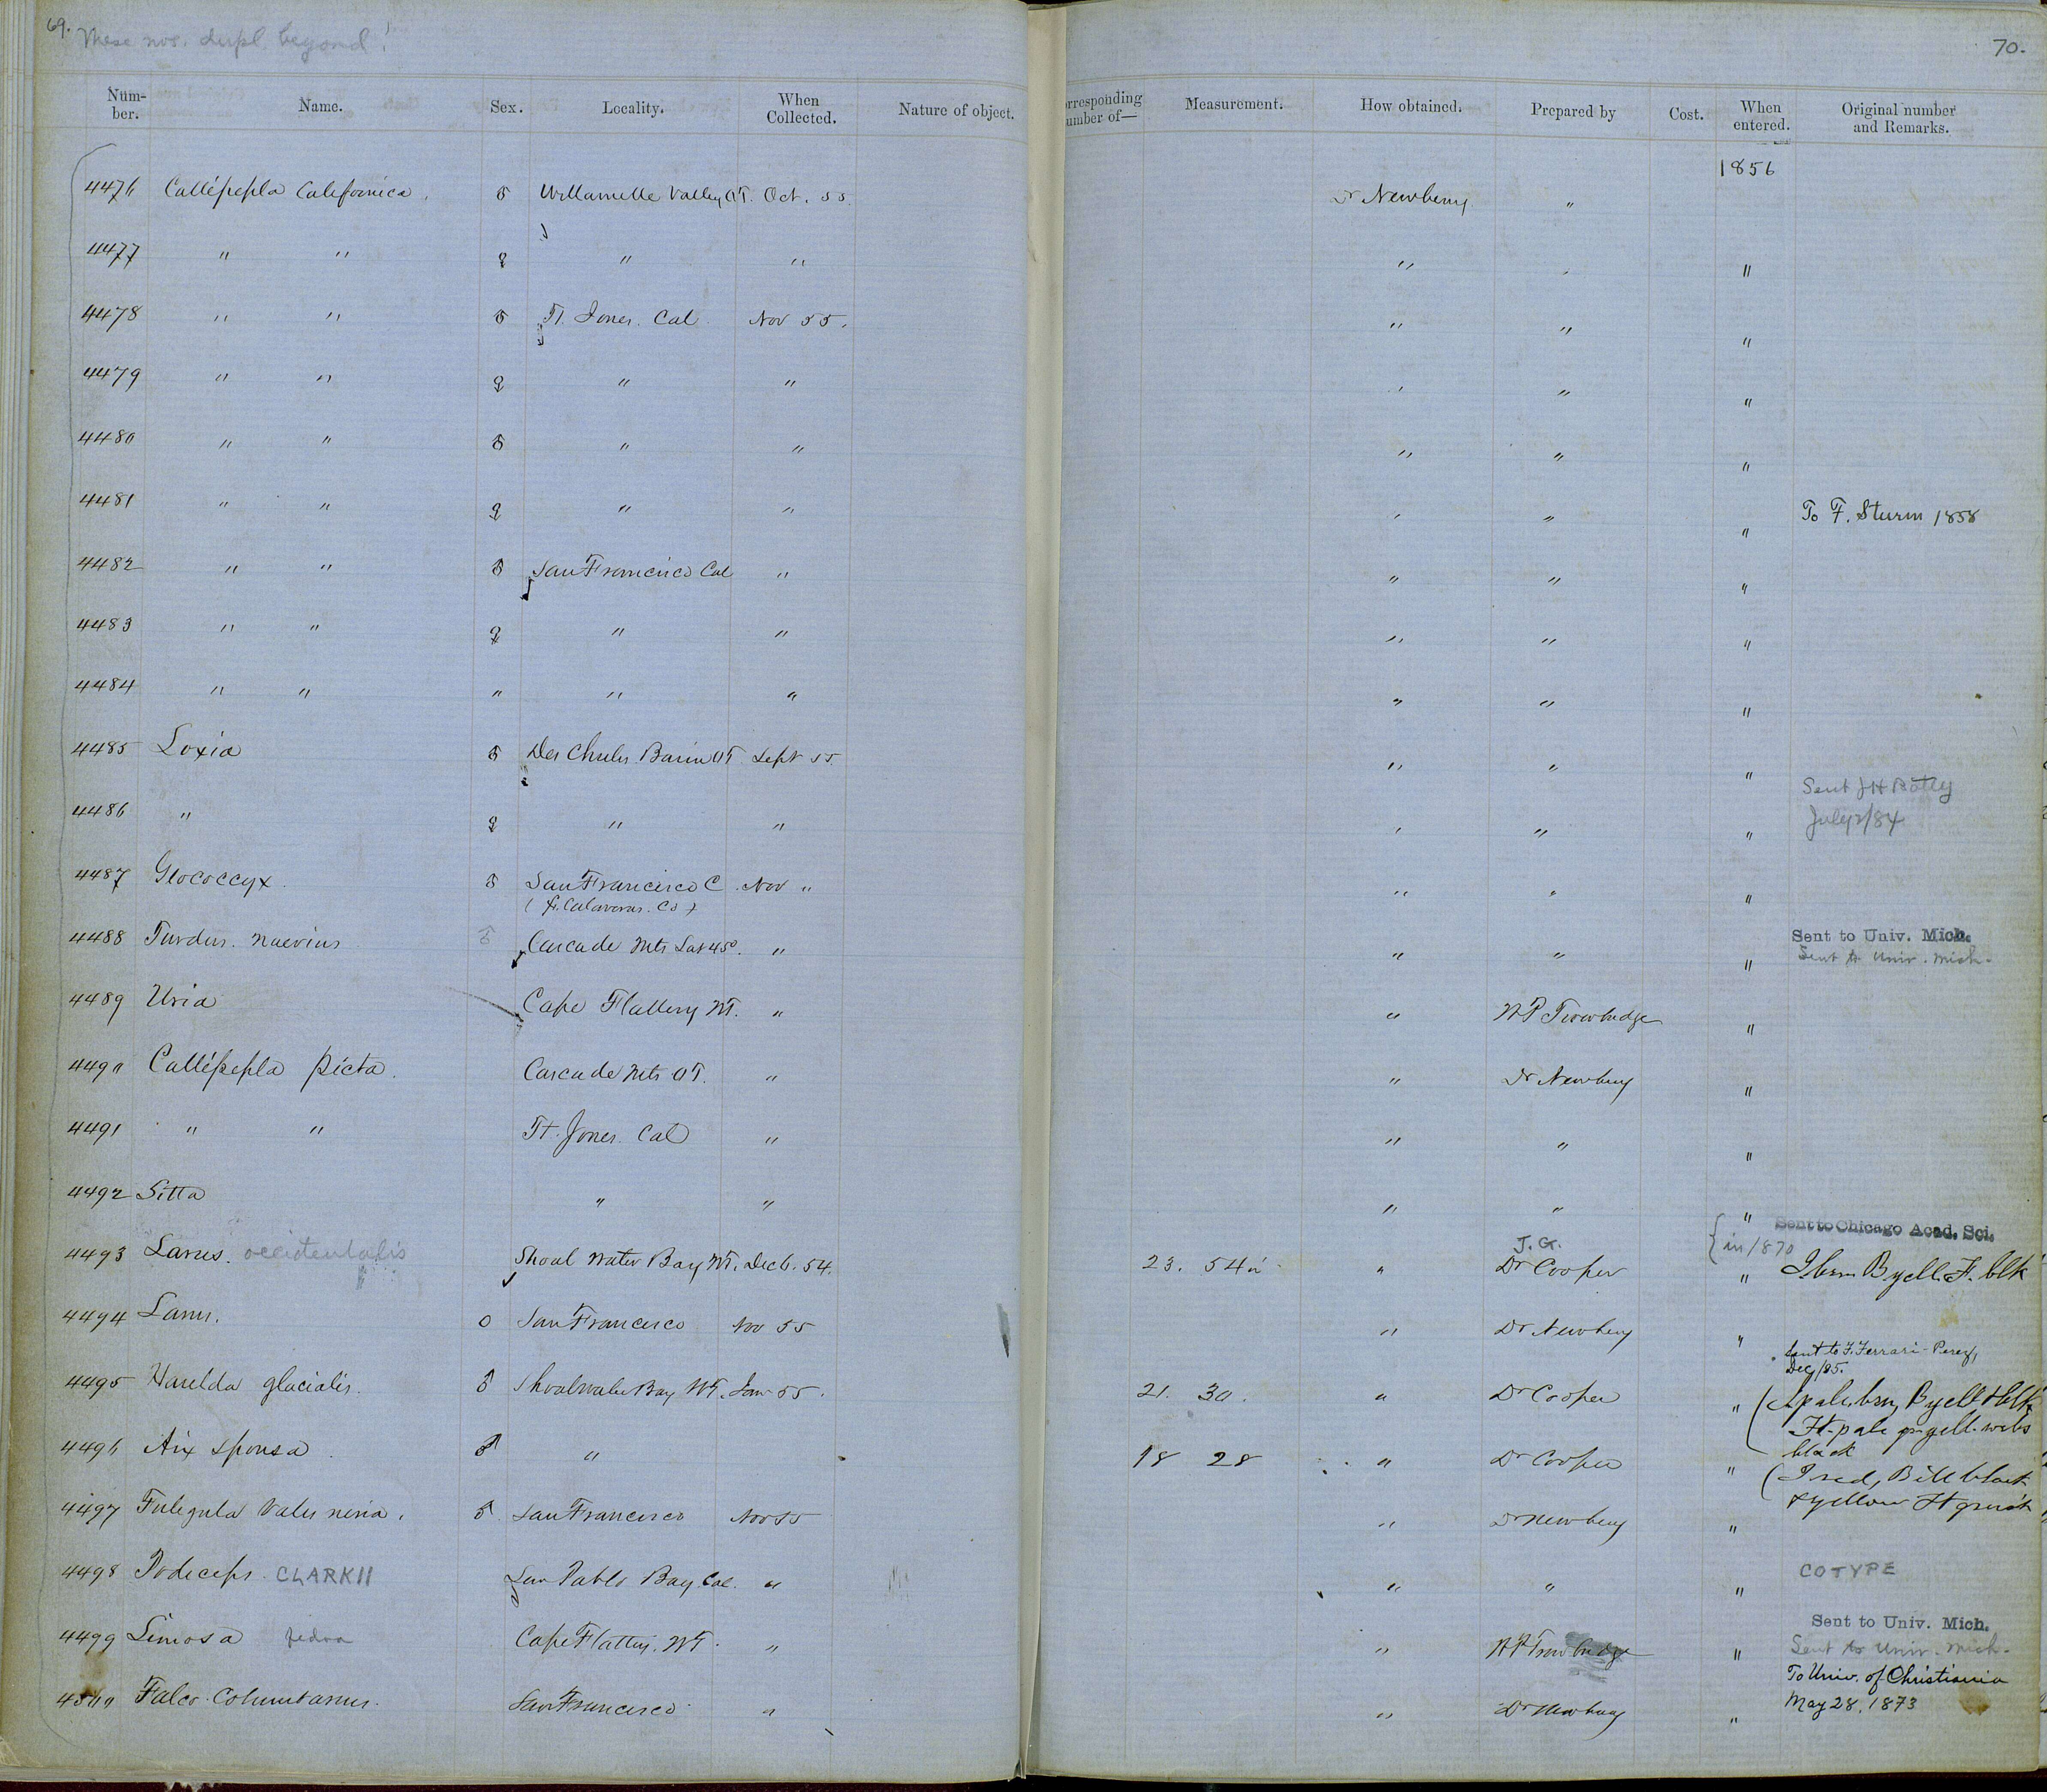 69. These nos. dupl. beyond! 70.
Num-ber. Name. Sex. Locality. When Collected. Nature of object. orresponding umber of— Measurement. How obtained. Prepared by Cost. When entered. Original number and Remarks.
1856
4476 Callipepla Californica. ♂ Willamette Valley OT. Oct. 55 Dr Newberry "
4477 " " ♀ " " " " "
4478 " " ♂ Ft. Jones. Cal. Nov 55. " " "
4479 " " ♀ " " " " "
4480 " " ♂ " " " " "
4481 " " ♀ " " " " " To F. Sturm 1858
4482 " " ♂ San Francisco Cal " " " "
4483 " " ♀ " " " " "
4484 " " " " " " " "
4485 Loxia ♂ Des Chutes Basin OT Sept 55. " " "
4486 " ♀ " " " " " Sent J H
July /84
4487 Geococcyx. ♂ San Francisco C. Nov " " " "
(fr. Calaveras. Co)
4488 Turdus. naevius ♂ Cascade Mts Lat 45°. " " " " Sent to Univ. Mich.
Sent to Univ. Mich.
4489 Uria Cape Flattery WT. " " W P Trowbridge "
4490 Callipepla picta. Cascade Mts OT. " " Dr Newberry "
4491 " " Ft. Jones. Cal " " " "
4492 Sitta " " " " " Sent to Chicago Acad. Sci.
in 1870
4493 Larus. occidentalis Shoal Water Bay WT. Decb. 54. 23. 54 " J. G. Dr Cooper " I. brn B yell. F. blk
4494 Larus. O San Francisco Nov 55 " Dr Newberry "
Sent to F. Ferrari-Perez,
Dec/85.
4495 Harelda glacialis. ♂ Shoalwater Bay WT. Jan 55. 21. 30. " Dr Cooper " I pale brn, B yell & blk
Ft. pale yell. webs
black
4496 Aix sponsa. ♂ " 18 28 " Dr Cooper " I red, Bill black
& yellow Ft
4497 Fuligula Valisneria. ♂ San Francisco Nov 55 " Dr Newberry "
4498 Podiceps. CLARKII San Pablo Bay. Cal. " " " " COTYPE
4499 Limosa fedoa Cape Flattery. WT. " " W P Trowbridge " Sent to Univ. Mich.
Sent to Univ. Mich.
4500 Falco. Columbarius. San Francisco " " Dr Newberry " To Univ. of Christiania
May 28, 1873